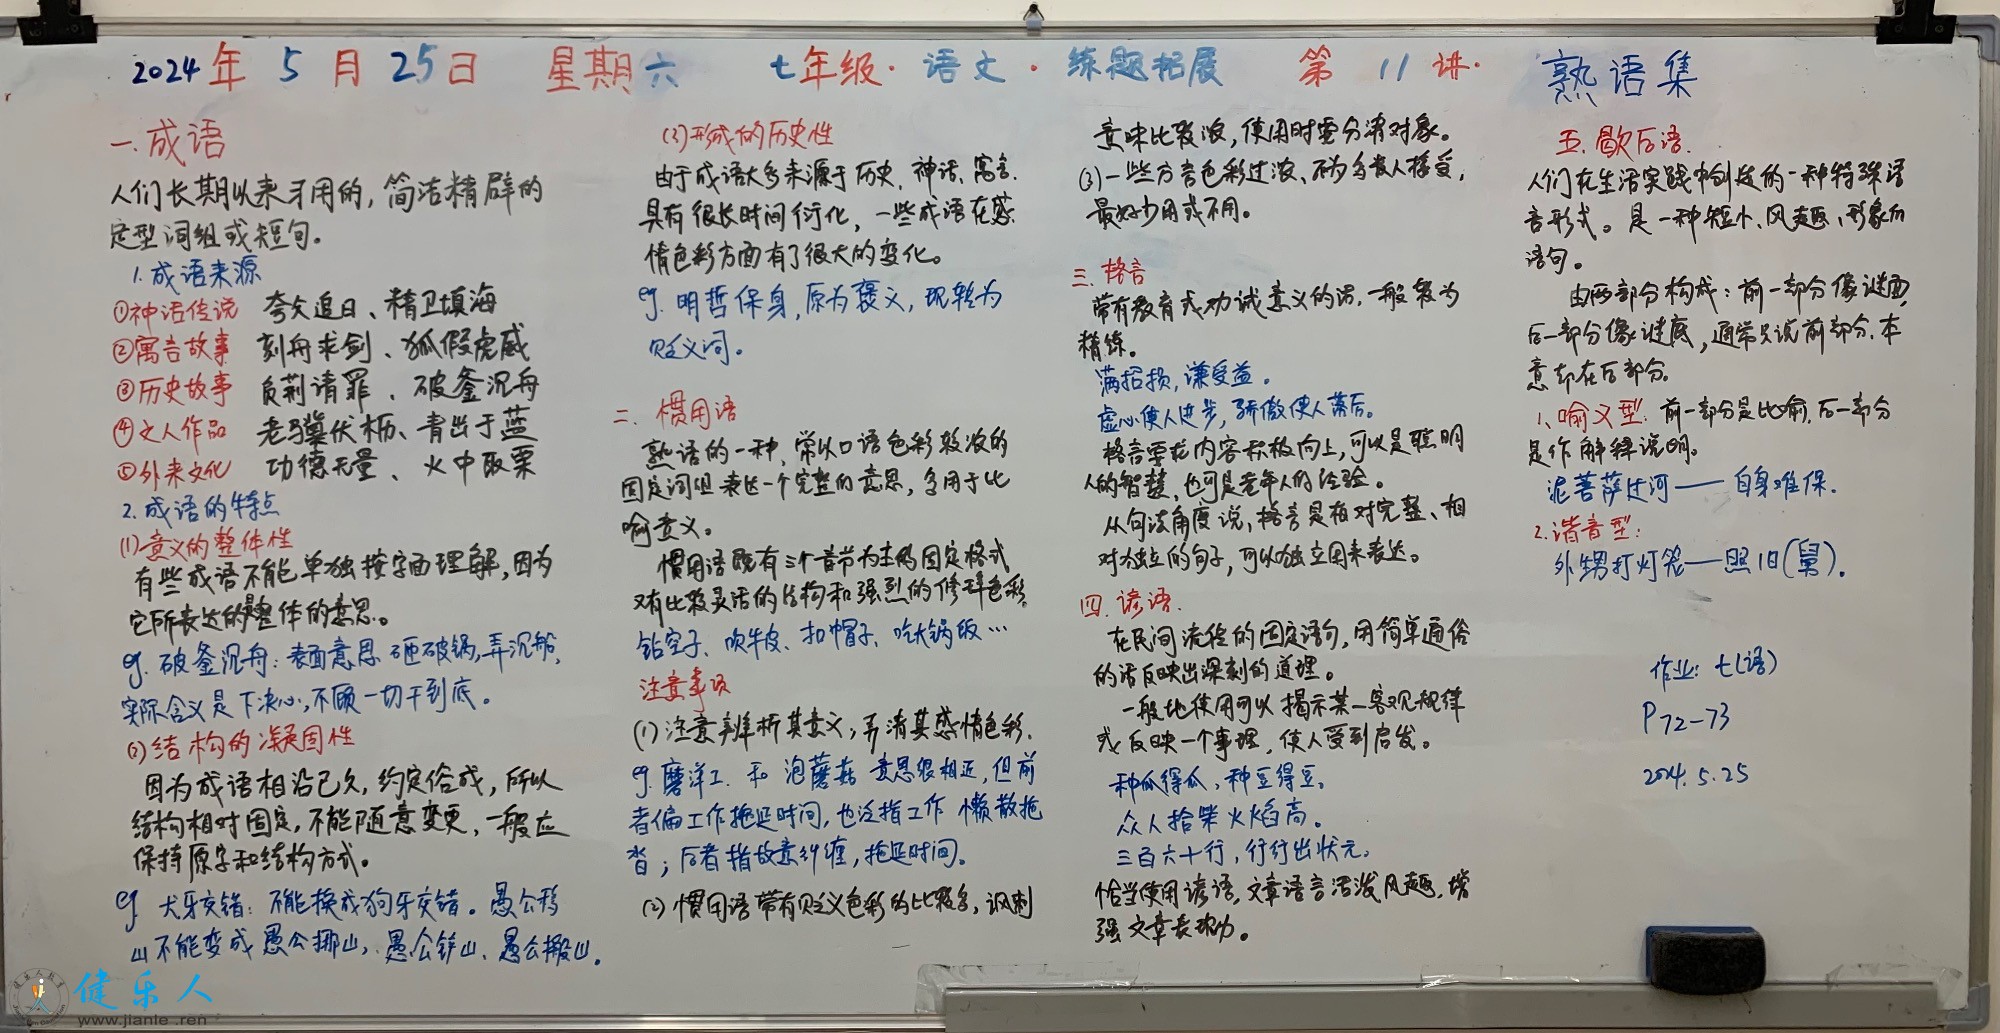 2024年5月25日 星期六 七年级·语文·练题拓展 第11讲· 熟语集
一.成语
人们长期以来习用的,简洁精辟的
定型词组或短句。
1.成语来源
①神话传说 夸父追日、精卫填海
②寓言故事 刻舟求剑、狐假虎威
③历史故事 负荆请罪、破釜沉舟
④文人作品 老骥伏枥、青出于蓝
⑤外来文化 功德无量、火中取栗
2.成语的特点
(1)意义的整体性
有些成语不能单独按字面理解,因为
它所表达的是整体的意思。
eg.破釜沉舟:表面意思砸破锅,弄沉船,
实际含义是下决心,不顾一切干到底。
(2)结构的凝固性
因为成语相沿已久,约定俗成,所以
结构相对固定,不能随意变更,一般应
保持原字和结构方式。
eg 犬牙交错:不能换成狗牙交错。愚公移
山不能变成愚公挪山,愚公铲山、愚公搬山。
(3)形成的历史性
由于成语大多来源于历史、神话、寓言.
具有很长时间衍化,一些成语在感
情色彩方面有了很大的变化。
eg.明哲保身,原为褒义,现转为
贬义词。
二.惯用语
熟语的一种,常以口语色彩较浓的
固定词组表达一个完整的意思,多用于比
喻意义。
惯用语既有三个音节为主的固定格式
又有比较灵活的结构和强烈的修辞色彩.
钻空子、吹牛皮、扣帽子、吃大锅饭…
注意事项
(1)注意辨析其意义,弄清其感情色彩.
eg.磨洋工.和 泡蘑菇 意思很相近,但前
者偏工作拖延时间,也泛指工作懒散拖
沓;后者指故意纠缠,拖延时间。
(2)惯用语带有贬义色彩的比较多,讽刺
意味比较浓,使用时要分清对象。
(3)一些方言色彩过浓、不为多数人接受,
最好少用或不用。
三.格言
带有教育或劝诫意义的话,一般较为
精练。
满招损,谦受益。
虚心使人进步,骄傲使人落后。
格言要求内容积极向上,可以是聪明
人的智慧,也可是老年人的经验。
从句法角度说,格言是相对完整、相
对独立的句子,可以独立用来表达。
四.谚语.
在民间流传的固定语句,用简单通俗
的话反映出深刻的道理。
一般地使用可以揭示某一客观规律
或反映一个事理,使人受到启发。
种瓜得瓜,种豆得豆。
众人拾柴火焰高。
三百六十行,行行出状元,
恰当使用谚语,文章语言活泼风趣,增
强文章表现力。
五.歇后语.
人们在生活实践中创造的一种特殊语
言形式。是一种短小、风趣、形象的
语句。
由两部分构成:前一部分像谜面,
后一部分像谜底,通常只说前部分,本
意却在后部分。
1、喻义型:前一部分是比喻,后一部分
是作解释说明。
泥菩萨过河——自身难保.
2.谐音型:
外甥打灯笼——照旧(舅)。
作业:七(语)
P72—73
2024.5.25
健乐人
www.jianle.ren